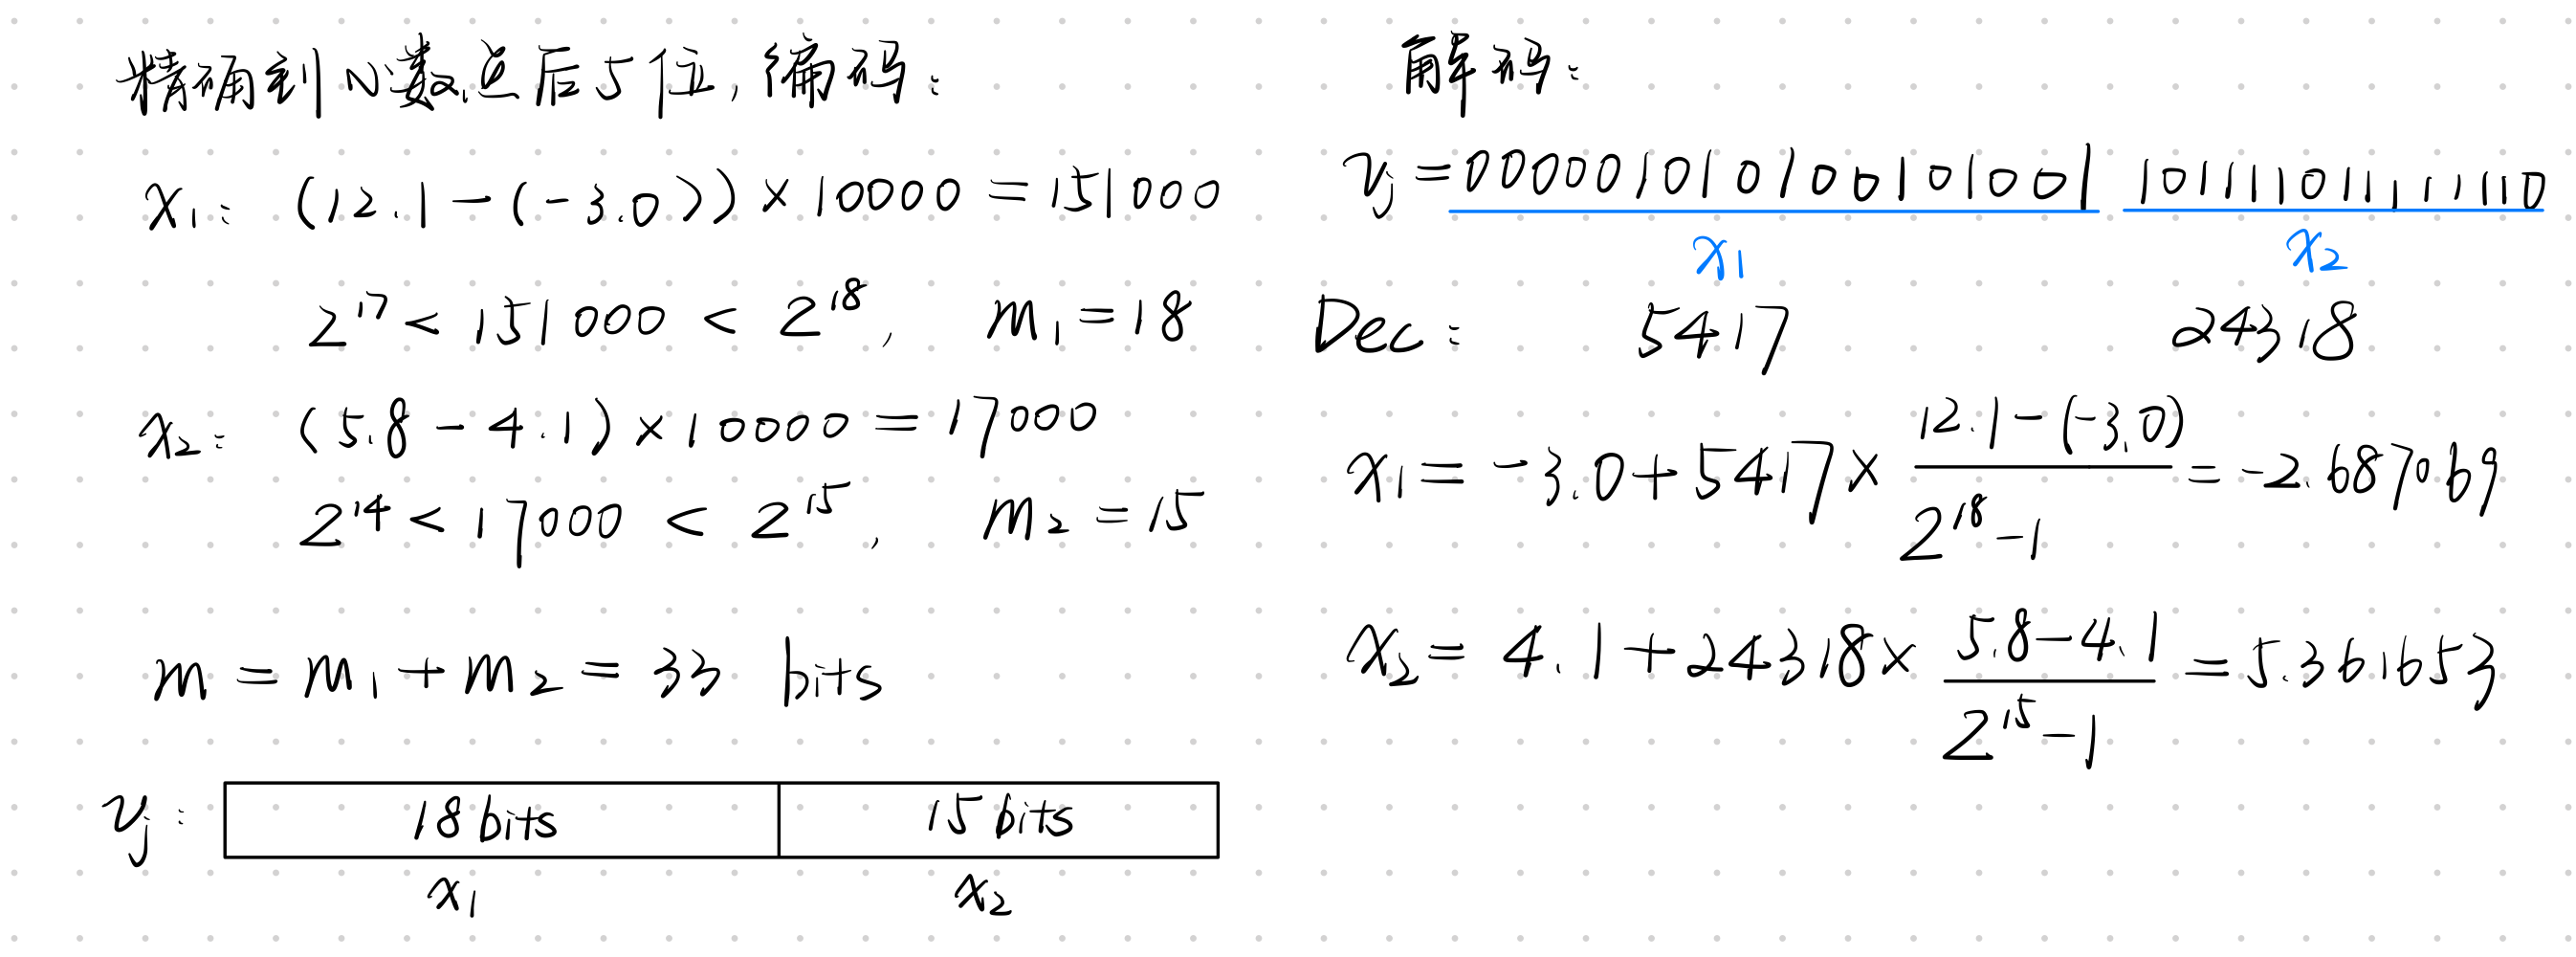 精确到小数点后5位，编码：
x₁: (12.1-(-3.0))×10000=151000
2¹⁷<151000<2¹⁸, m₁=18
x₂: (5.8-4.1)×10000=17000
2¹⁴<17000<2¹⁵, m₂=15
m=m₁+m₂=33 bits
vⱼ: 18bits 15bits
x₁ x₂
解码：
vⱼ=000001010100101001 101111011111110
x₁ x₂
Dec: 5417 24318
x₁=-3.0+5417×(12.1-(-3.0))/(2¹⁸-1)=-2.687069
x₂=4.1+24318×(5.8-4.1)/(2¹⁵-1)=5.361653